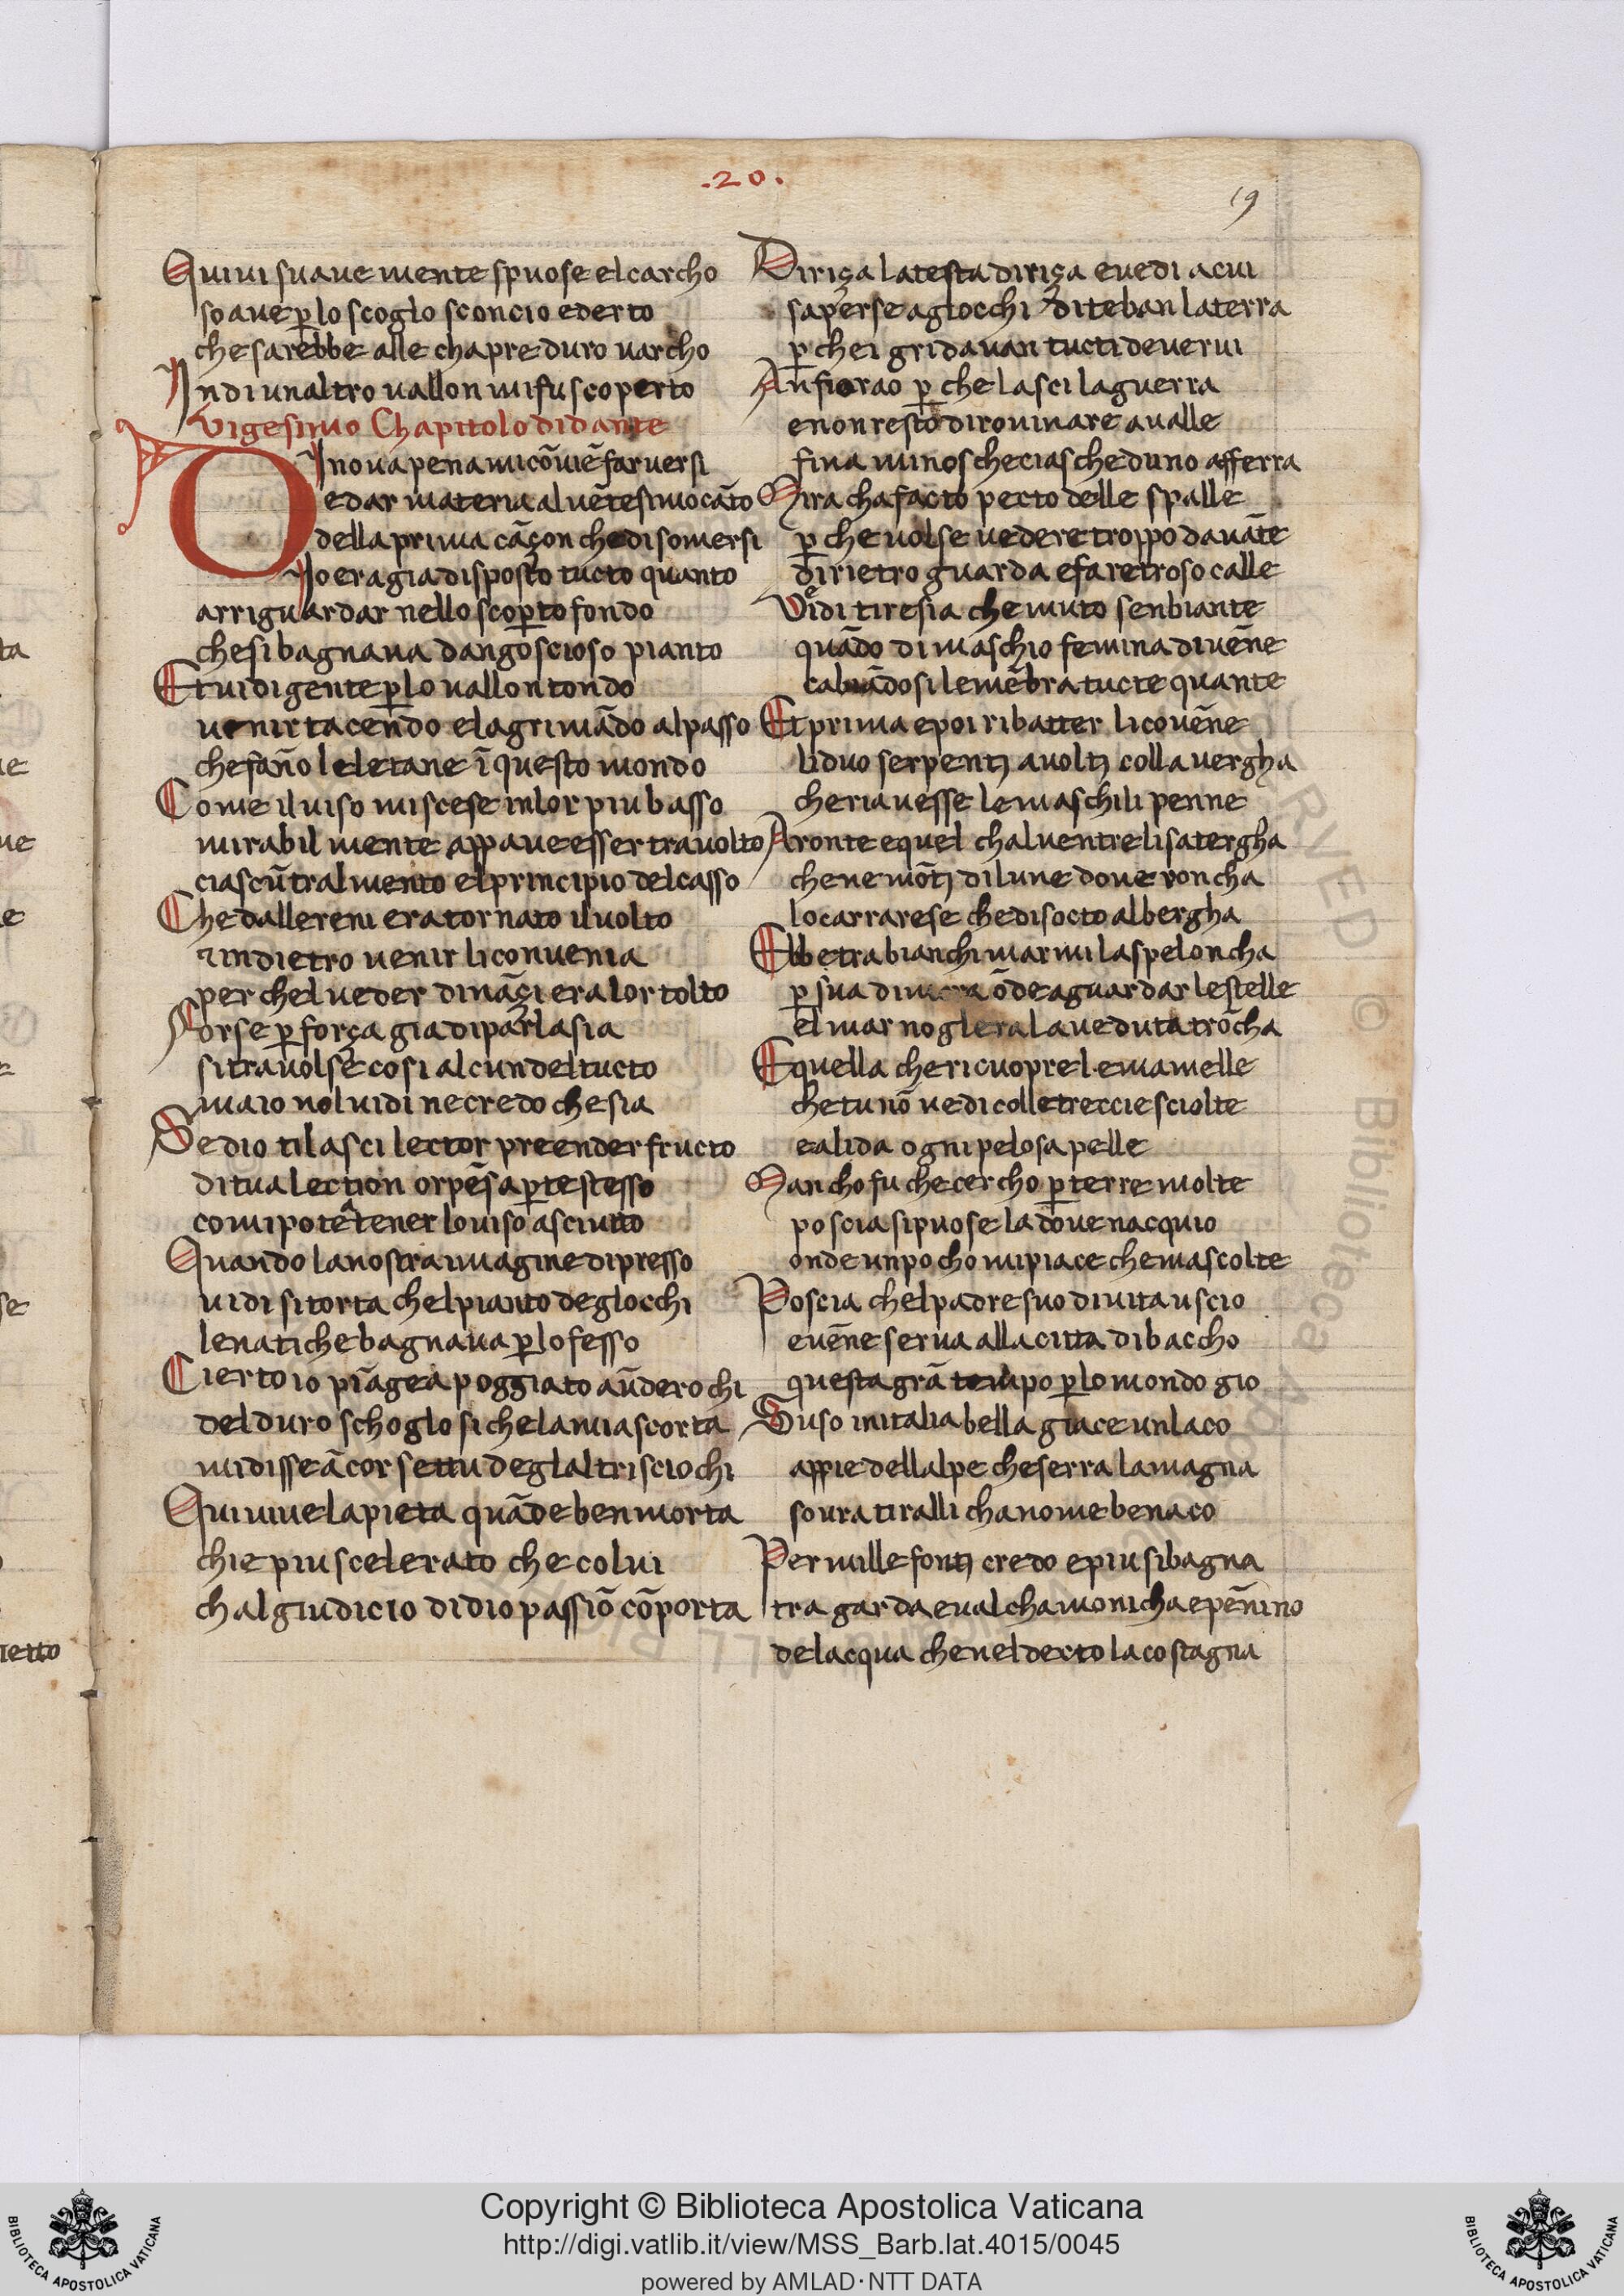 .20.
19
Quivi suave mente spuose el carcho
soave p̱ lo scoglo sconcio ed erto
che sarebbe alle chapre duro varcho
Indi unaltro vallon mi fu scoperto
Vigesimo Chapitolo di dante
DI nova pena mi cōviē far versi
e dar materia al vētesimo cāto
della prima cāçon che di somersi
Io era gia disposto tucto quanto
a rriguardar nello scop̱to fondo
che si bagnava dangoscioso pianto
Et vidi gente p̱ lo vallon tondo
venir tacendo e lagrimādo al passo
che fāno le letane ī questo mondo
Come il viso mi scese in lor piu basso
mirabil mente appave esser travolto
ciascū tral mento el principio del casso
Che dalle reni era tornato il volto
⁊ indietro venir li convenia
per chel veder dināçi era lor tolto
Forse p̱ força gia di parlasia
si travolse cosi alcun del tucto
ma io nol vidi ne credo che sia
Se dio ti lasci lector preender fructo
di tua lection or pēsa p̱ te stesso
comi potē tener lo viso asciutto
Quando la nostra imagine di presso
vidi si torta chel pianto degl occhi
le natiche bagnava p̱ lo fesso
Cierto io piāgea poggiato a ū de rochi
del duro schoglo si che la mia scorta
mi disse ācor se ttu degl altri sciochi
Qui vive la pieta quādē ben morta
chi e piu scelerato che colui
chal giudicio di dio passiō cōporta
Diriça la testa diriça e vedi a cui
saperse agl occhi di teban la terra
p̱ chei gridavan tucti deve rui
Anfiorao p̱ che lasci la guerra
e non resto di rovinare a valle
fin a minos che ciascheduno afferra
Mira cha facto pecto delle spalle
p̱ che volse vedere troppo davāte
di rietro guarda e fa retroso calle
Vedi tiresia che muto senbiante
quādo di maschio femina divēne
cabiādosi le mēbra tucte quante
Et prima e poi ribatter li covēne
li duo serpenti avolti colla vergha
che riavesse le maschili penne
Aronte e quel chal ventre li satergha
che ne mōti di lune dove roncha
lo carrarese che di socto albergha
Ebbe tra bianchi marmi la speloncha
p̱ sua dimora ōde a guardar le stelle
el mar no glera la veduta trōcha
E quella che ricuopre le mamelle
che tu nō vedi colle treccie sciolte
e a li da ogni pelosa pelle
Mancho fu che cercho p̱ terre molte
poscia si puose la dove nacquio
onde un pocho mi piace che mascolte
Poscia chel padre suo di vita uscio
e vēne serva alla citta di baccho
questa grā tempo p̱ lo mondo gio
Suso in italia bella giace un laco
appie dellalpe che serra lamagna
sovra tiralli cha nome benaco
Per mille fonti credo e piu si bagna
tra garda e val chamonicha e penīno
de lacqua che nel decto laco stagna
Copyright © Biblioteca Apostolica Vaticana
http://digi.vatlib.it/view/MSS_Barb.lat.4015/0045
powered by AMLAD·NTT DATA
BIBLIOTECA APOSTOLICA VATICANA
BIBLIOTECA APOSTOLICA VATICANA